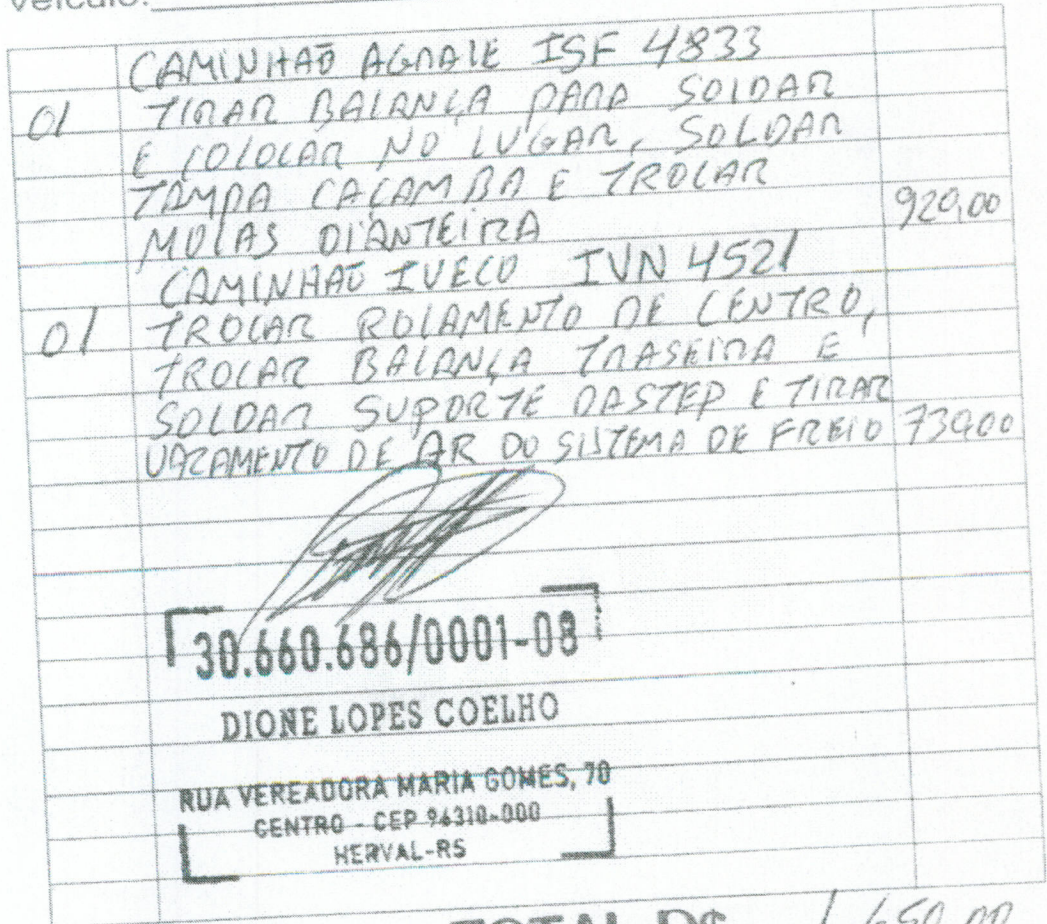 Veículo:
CAMINHAO AGRALE ISF 4833
01 TIRAR BALANÇA PARA SOLDAR
E COLOCAR NO LUGAR, SOLDAR
TAMPA CAÇAMBA E TROCAR
MOLAS DIANTEIRA 920,00
CAMINHAO IVECO IVN 4521
01 TROCAR ROLAMENTO DE CENTRO,
TROCAR BALANÇA TRASEIRA E
SOLDAR SUPORTE DASTEP E TIRAR
VAZAMENTO DE AR DO SISTEMA DE FREIO 730,00
30.660.686/0001-08
DIONE LOPES COELHO
RUA VEREADORA MARIA GOMES, 70
CENTRO - CEP 96310-000
HERVAL-RS
TOTAL R$ 1.650,00